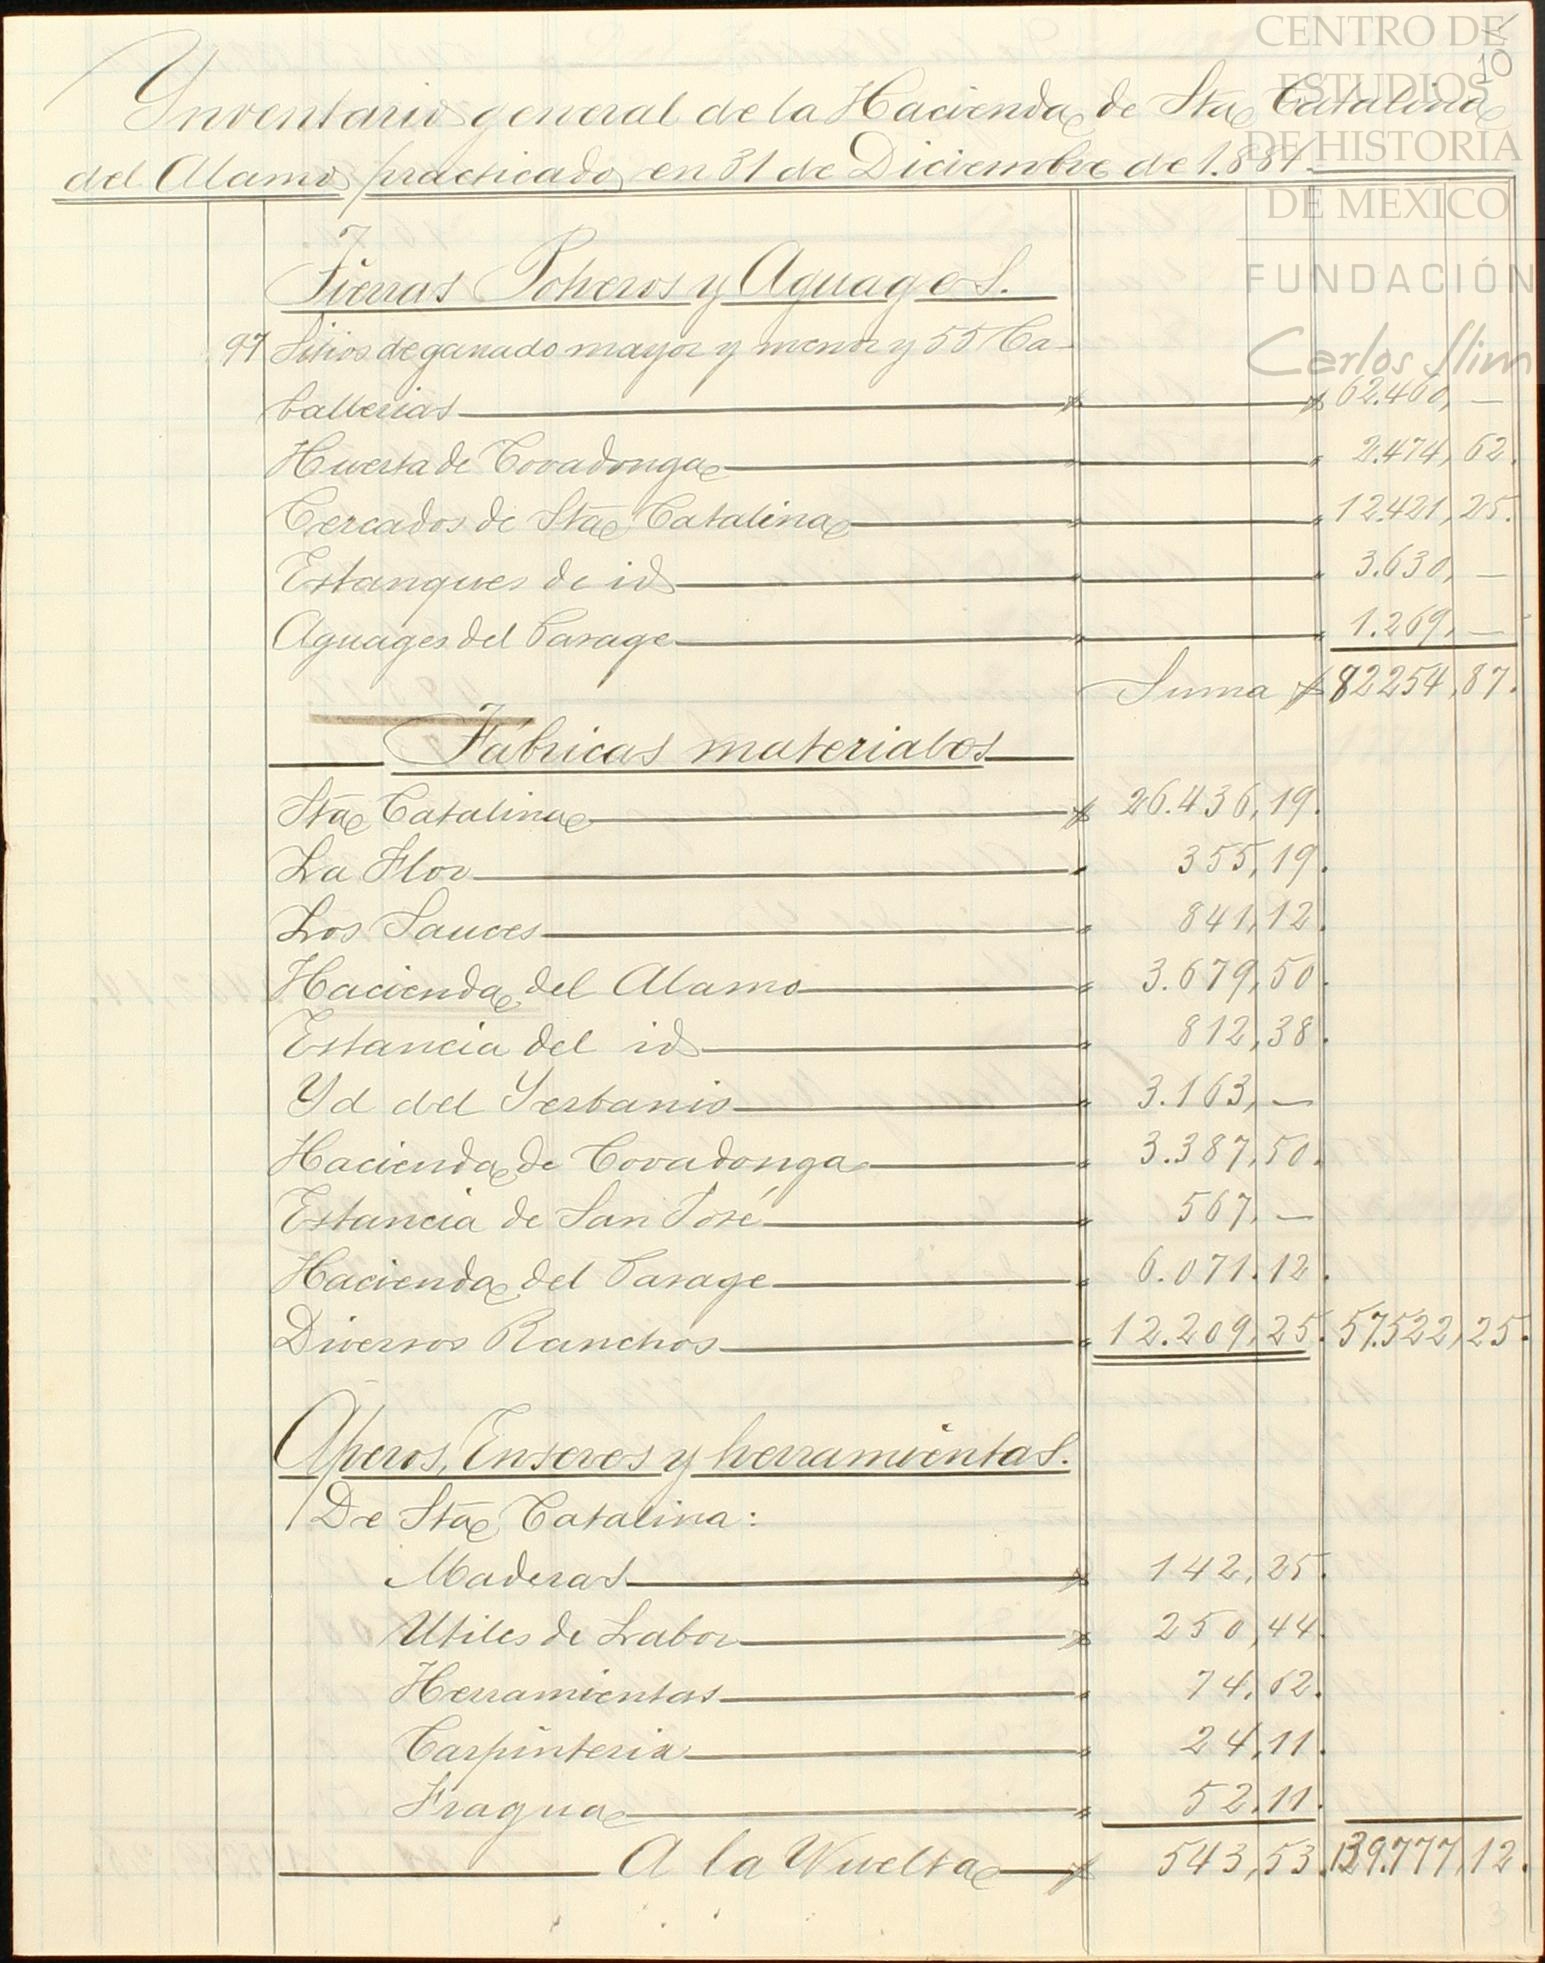 CENTRO DE
ESTUDIOS
DE HISTORIA
DE MEXICO
FUNDACIÓN
Carlos Slim
10
Ynventario general de la Hacienda de Sta Catalina
del Alamo practicado en 31 de Diciembre de 1.881.
Tierras Potreros y Aguages.
97 Sitios de ganado mayor y menor y 55 Ca-
ballerias $ $ 62.460, —
Huerta de Covadonga " " 2.474, 62.
Cercados de Sta Catalina " " 12.421, 25.
Estanques de id " " 3.630, —
Aguages del Pasage " " 1.269, —
Suma $ 82254, 87.
Fábricas materiales
Sta Catalina $ 26.436, 19.
La Flor " 355, 19.
Los Sauces " 841, 12.
Hacienda del Alamo " 3.679, 50.
Estancia del id " 812, 38.
Yd del Yerbanis " 3.163, —
Hacienda de Covadonga " 3.387, 50.
Estancia de San José " 567, —
Hacienda del Pasage " 6.071. 12.
Diversos Ranchos " 12.209, 25. 57.522, 25.
Aperos, Enseres y herramientas.
De Sta Catalina:
Maderas $ 142, 25.
Utiles de Labor " 250, 44.
Herramientas " 74. 62.
Carpinteria " 24, 11.
Fragua " 52, 11.
A la Vuelta $ 543, 53. 139.777, 12.
3